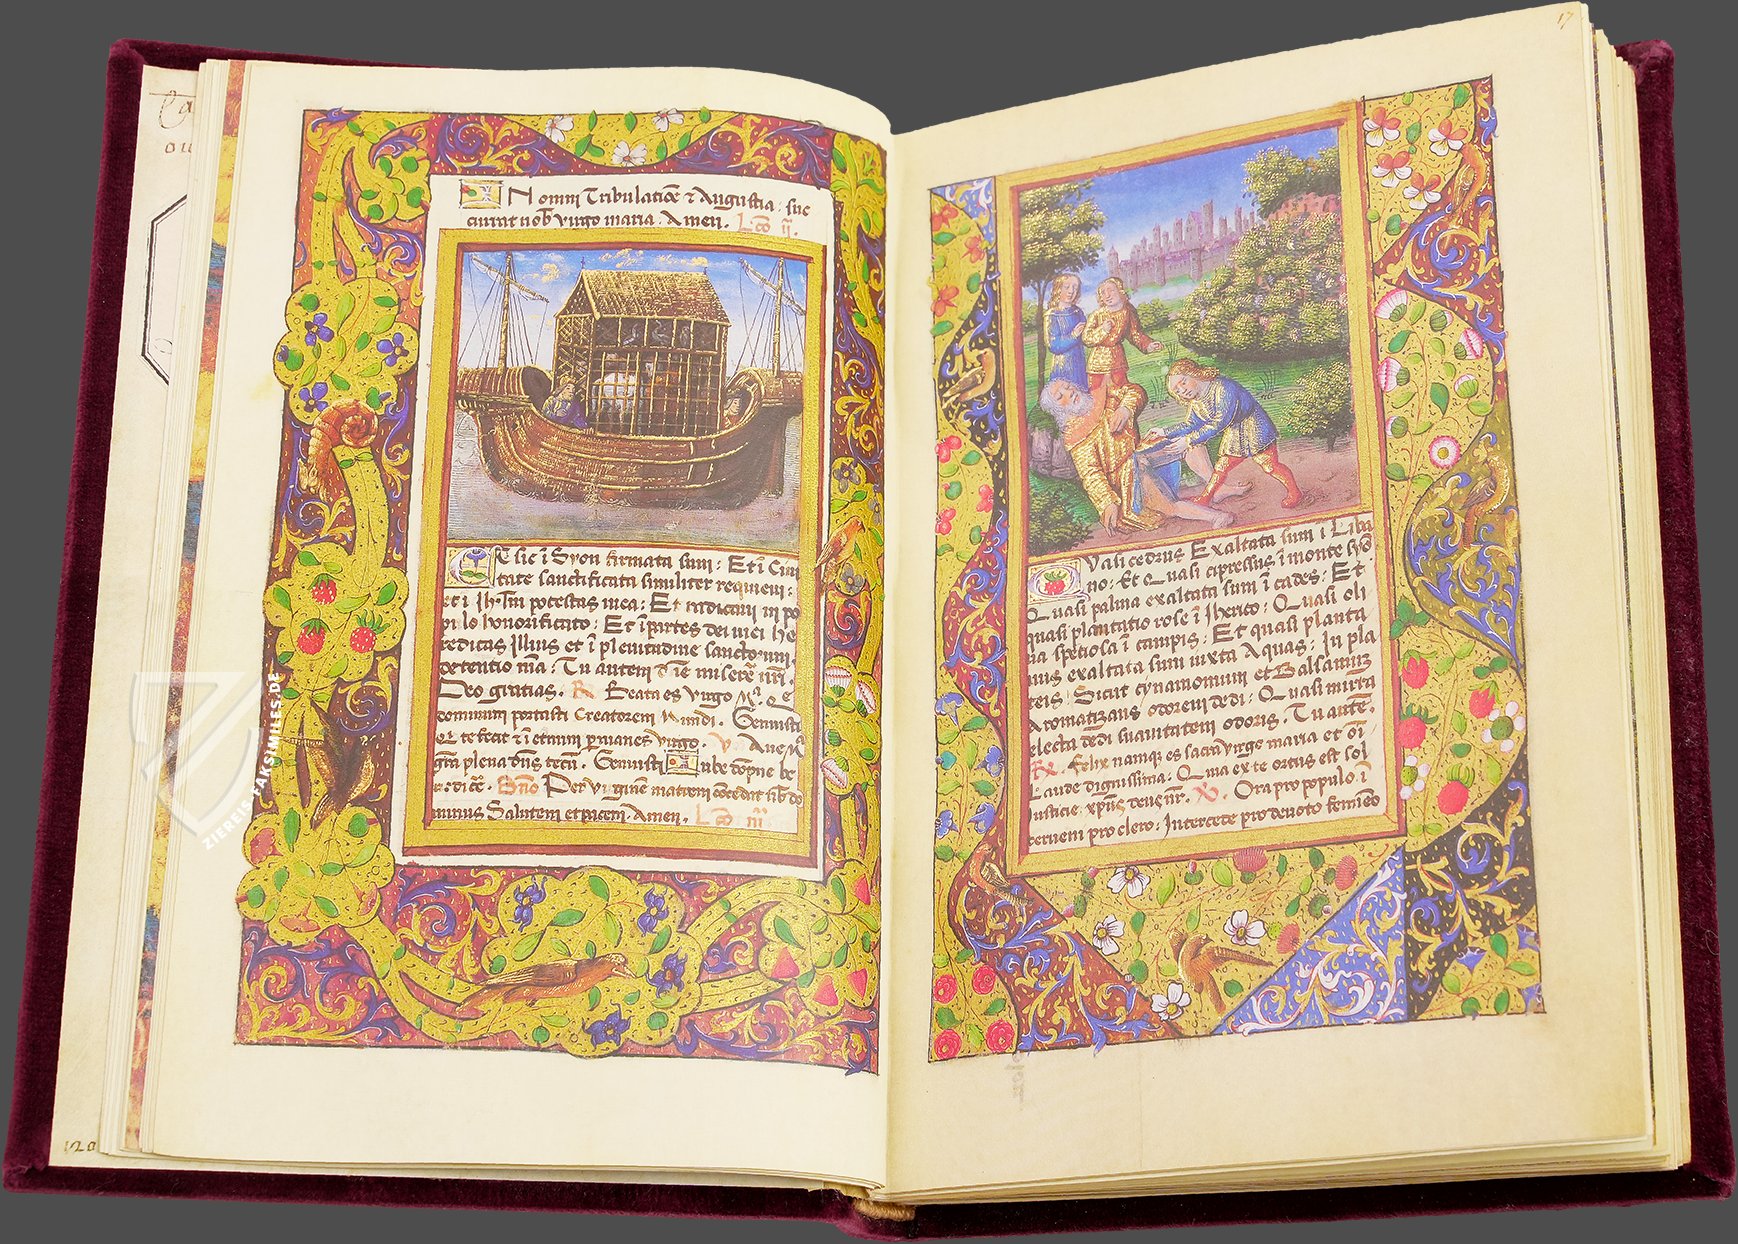 17
N omni Tribulatiõe ⁊ Angustia : suc
currat nob̃ virgo maria . Amen . L. c̃o ij.
T sic ĩ Syon firmata sum : Et ĩ Ciui
tate sanctificata similiter requieui :
et ĩ Ihr̃lm potestas mea : Et radicaui in po
pulo honorificato : Et ĩ partes dei mei he
reditas Illius et ĩ plenitudine sanctorum
detentio mea . Tu autem d̃ne miserere nr̃i .
Deo gratias . R̃ Beata es Virgo M̃a q̃
dominum portasti Creatorem Mundi . Genuisti
q̃ te fecit ⁊ ĩ eternum p̃manes virgo . V Ave Mã
gr̃a plena dñs tecũ . Genuisti Iube dom̃ne be
nedicẽ . Bñ̃o Per Virginẽ matrem concedat nob̃ do
minus Salutem et pacem . Amen . L c̃o iij
Vasi cedrus Exaltata sum ĩ Liba
no : Et Quasi cipressus ĩ monte syõ
Quasi palma exaltata sum ĩ cades : Et
quasi plantatio rose ĩ Iherico : Quasi oli
ua spetiosa ĩ campis : Et quasi planta
nus exaltata sum iuxta Aquas : In pla
teis : Sicut cynamomum et Balsamuz
Aromatizans odorem dedi : Quasi mirra
electa dedi suauitatem odoris . Tu autẽ .
R̃ . Felix namque es sacra virgo maria et oĩ
Laude dignissima . Quia ex te ortus est sol
iustitie . xp̃us deus nr̃ . V . Ora pro populo . ĩ
terueni pro clero : Intercede pro deuoto femineo
120
ZIEREIS FAKSIMILES.DE